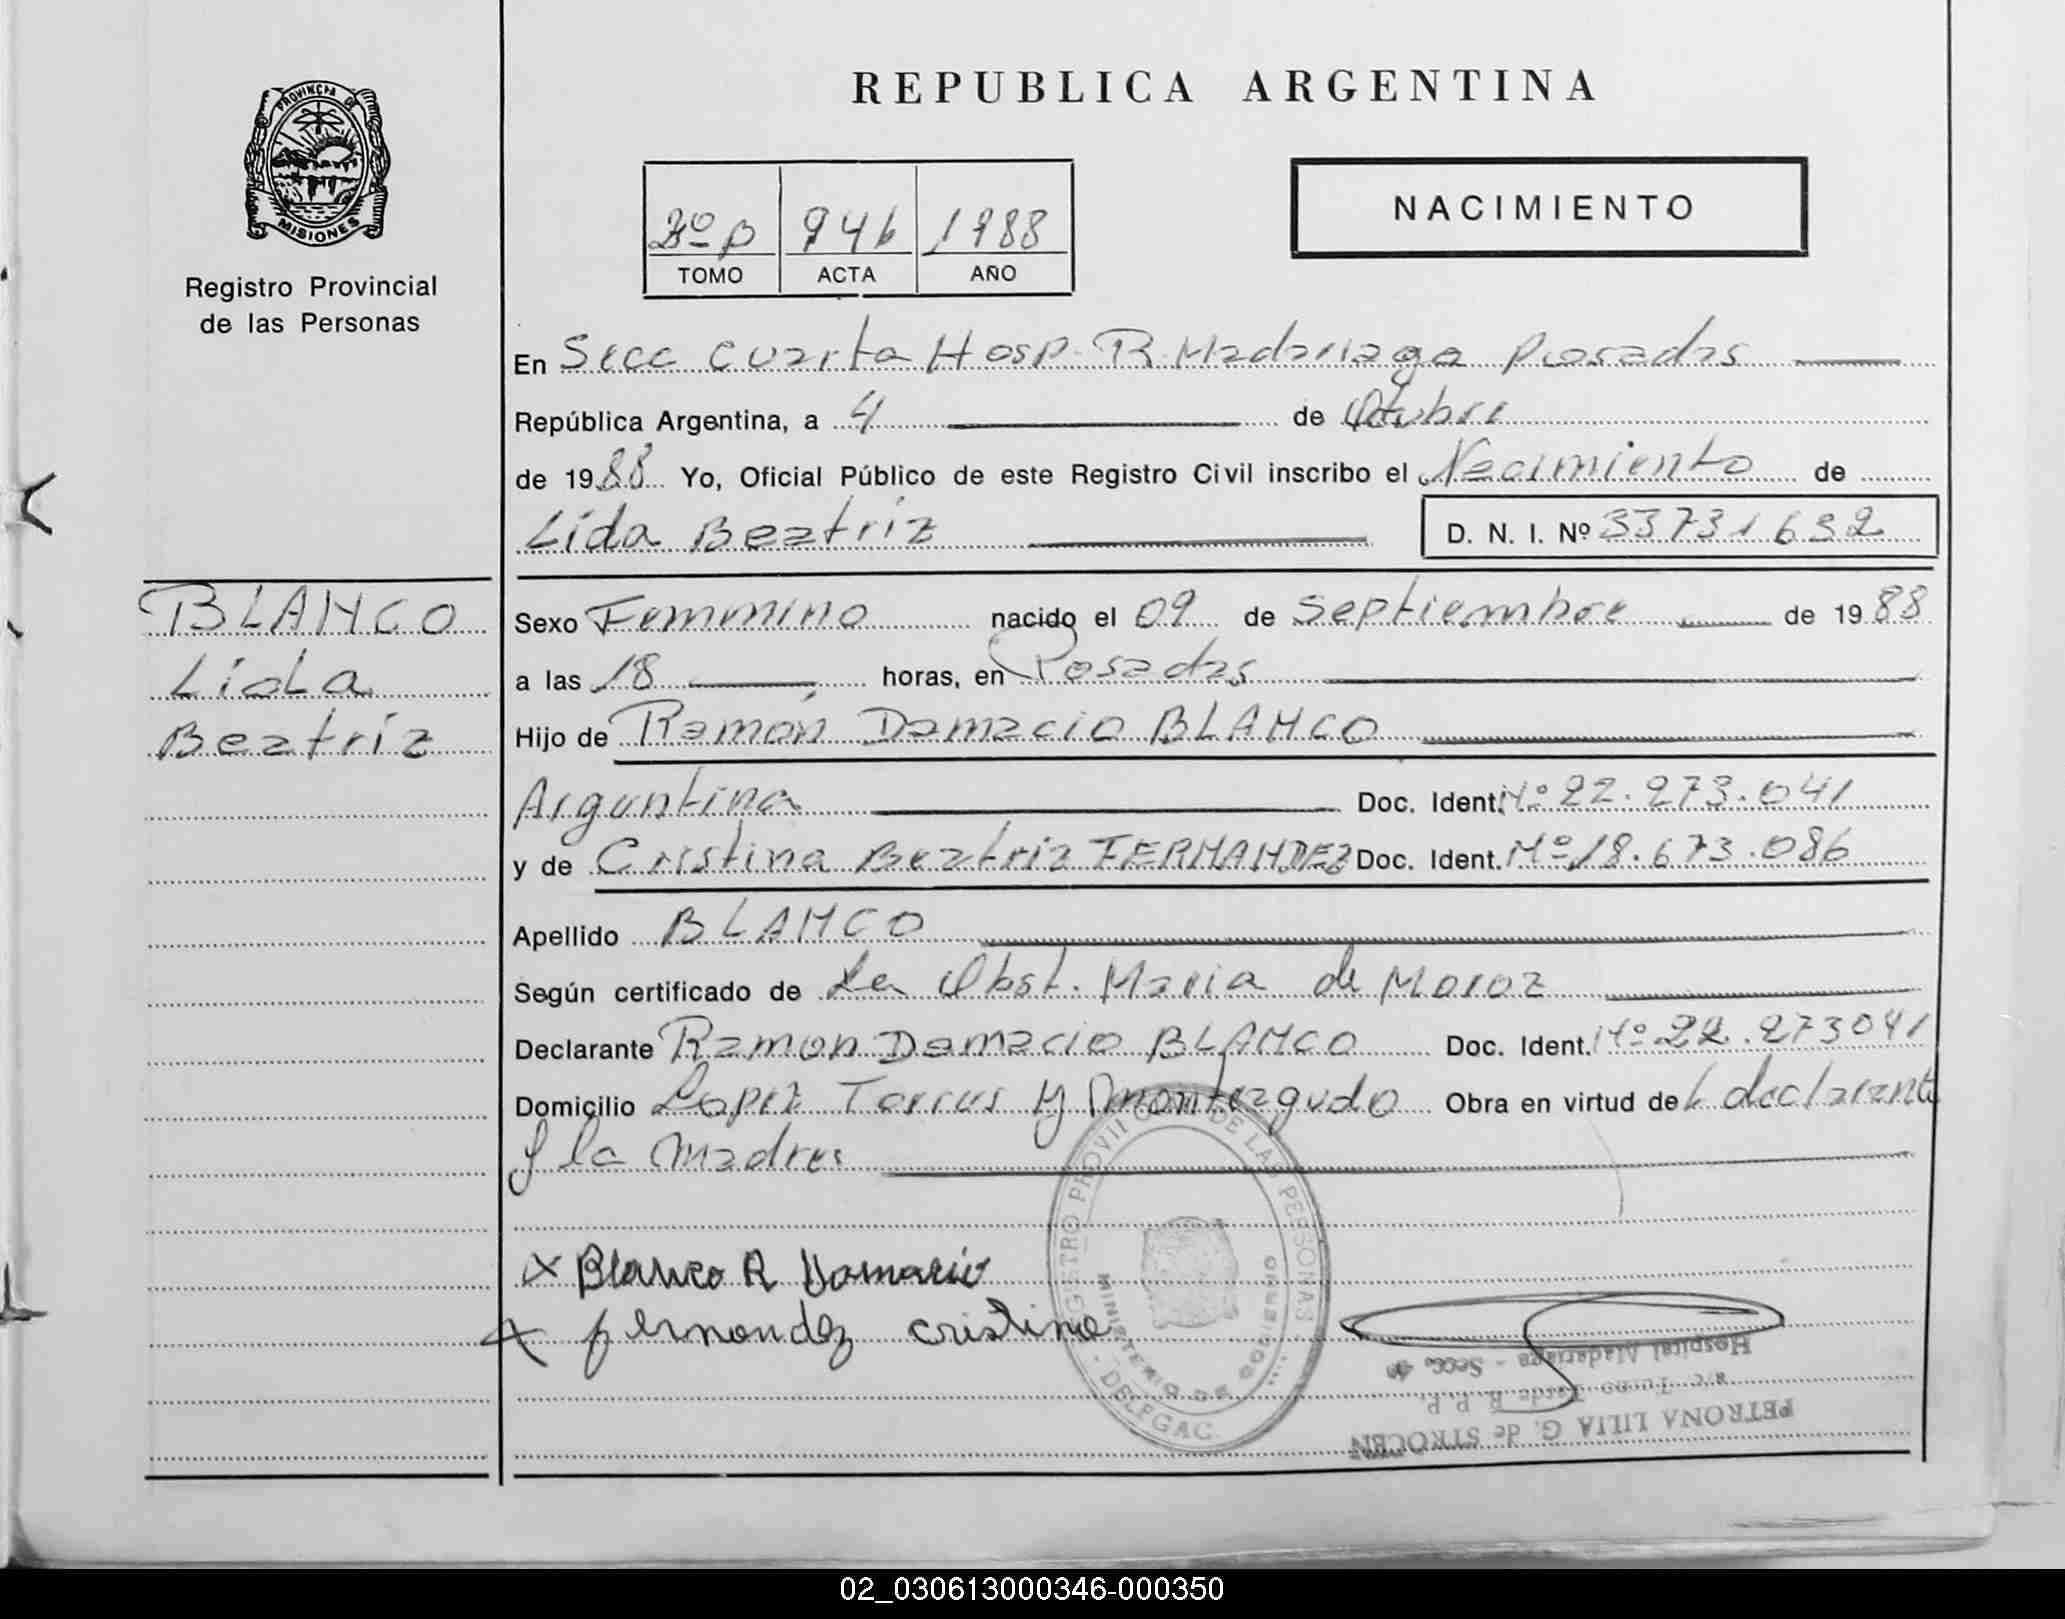 REPUBLICA ARGENTINA
PROVINCIA DE
MISIONES
Registro Provincial
de las Personas
NACIMIENTO
946 1988
TOMO ACTA AÑO
En Secc cuarta Hosp. R. Madariaga Posadas
República Argentina, a 4 de Octubre
de 1988 Yo, Oficial Público de este Registro Civil inscribo el Nacimiento de
Lida Beatriz D. N. I. Nº 33731632
BLANCO
Lida
Beatriz
Sexo Femenino nacido el 09 de Septiembre de 1988
a las 18 horas, en Posadas
Hijo de Ramón Damacio BLANCO
Argentina Doc. Ident. Nº 22.273.041
y de Cristina Beatriz FERNANDEZ Doc. Ident. Nº 18.673.086
Apellido BLANCO
Según certificado de La Obst. Maria de Moroz
Declarante Ramon Damacio BLANCO Doc. Ident. Nº 22.273041
Domicilio Lopez Torres y Monteagudo Obra en virtud de declarante
y la Madre
x Blanco R Damacio
x fernandez cristina
REGISTRO DE LAS PERSONAS
MINISTERIO DE GOBIERNO
DELEGAC.
Hospital Madariaga - Secc.
a/c Turno Tarde R. P. P.
PETRONA LILIA G. de
02_030613000346-000350